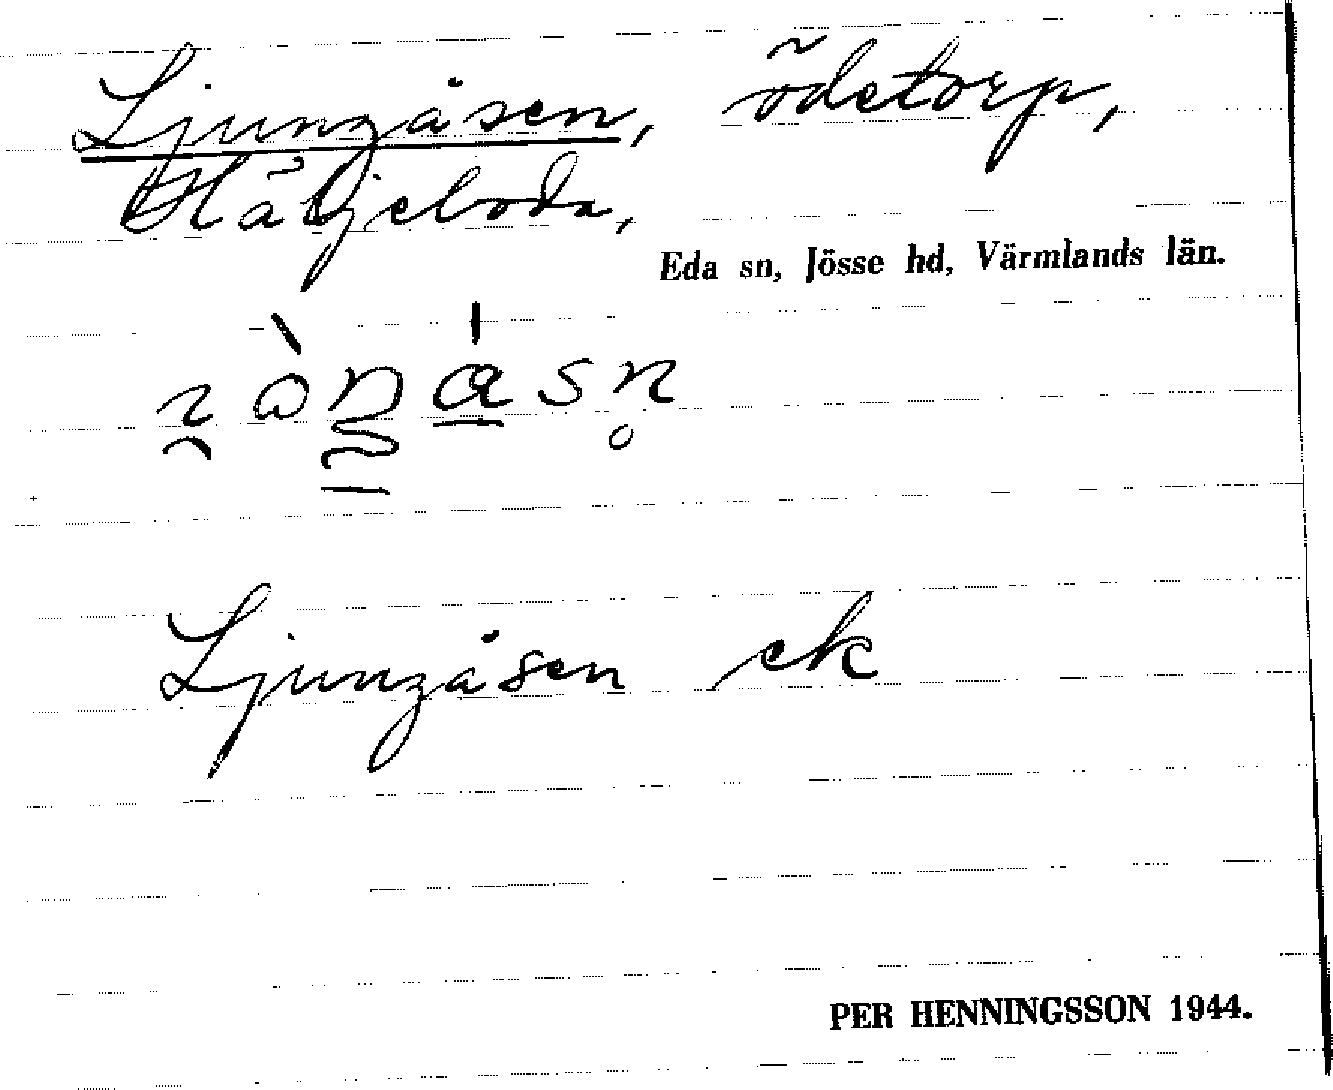 Ljungåsen, ödetorp,
Häljeboda,
Eda sn, Jösse hd, Värmlands län.
Ljungåsen ek
PER HENNINGSSON 1944.